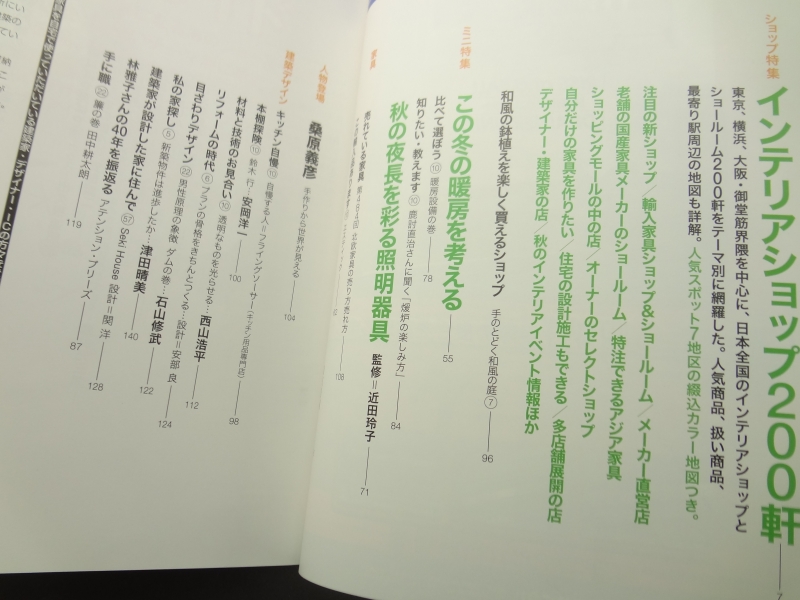 ショップ特集
インテリアショップ200軒
東京、横浜、大阪・御堂筋界隈を中心に、日本全国のインテリアショップと
ショールーム200軒をテーマ別に網羅した。人気商品、扱い商品、
最寄り駅周辺の地図も詳解。人気スポット7地区の綴込カラー地図つき。
注目の新ショップ/輸入家具ショップ&ショールーム/メーカー直営店
老舗の国産家具メーカーのショールーム/特注できるアジア家具
ショッピングモールの中の店/オーナーのセレクトショップ
自分だけの家具を作りたい/住宅の設計施工もできる/多店舗展開の店
デザイナー・建築家の店/秋のインテリアイベント情報ほか
和風の鉢植えを楽しく買えるショップ 手のとどく和風の庭⑦ 96
ミニ特集
この冬の暖房を考える 55
比べて選ぼう⑩ 暖房設備の巻 78
知りたい・教えます⑩ 鹿討直治さんに聞く「煖炉の楽しみ方」 84
秋の夜長を彩る照明器具 監修=近田玲子 71
家具
売れている家具 第484回 北欧家具の売り方売れ方 108
人物登場
桑原義彦 手作りから世界が見える 104
建築デザイン
キッチン自慢⑩ 自慢する人=フライングソーサー(キッチン用品専門店) 98
本棚探険⑩ 鈴木 行/安岡洋一 100
材料と技術のお見合い⑩ 透明なものを光らせる…西山浩平 112
リフォームの時代⑥ プランの骨格をきちんとつくる…設計=安部 良 124
目ざわりデザイン㉒ 男性原理の象徴 ダムの巻…石山修武 122
私の家探し⑤ 新築物件は進歩したか…津田晴美 140
建築家が設計した家に住んで57 Seki House 設計=関 洋 128
林雅子さんの40年を振返る アテンション・プリーズ 87
手に職㉒ 簾の巻 田中耕太朗 119